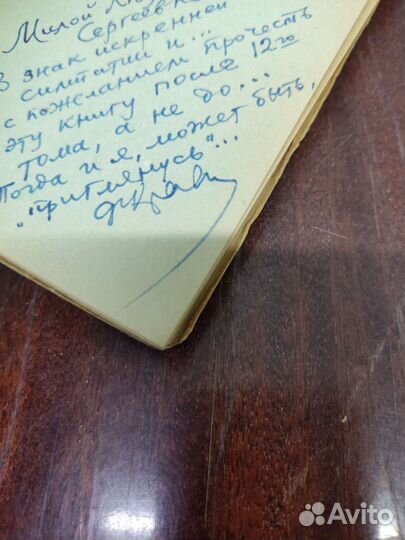 Милой
Сергеевне
В знак искренней
симпатии и...
с пожеланием прочесть
эту книгу после 12го
тома, а не до...
Тогда и я, может быть,
"приглянусь"...
Avito